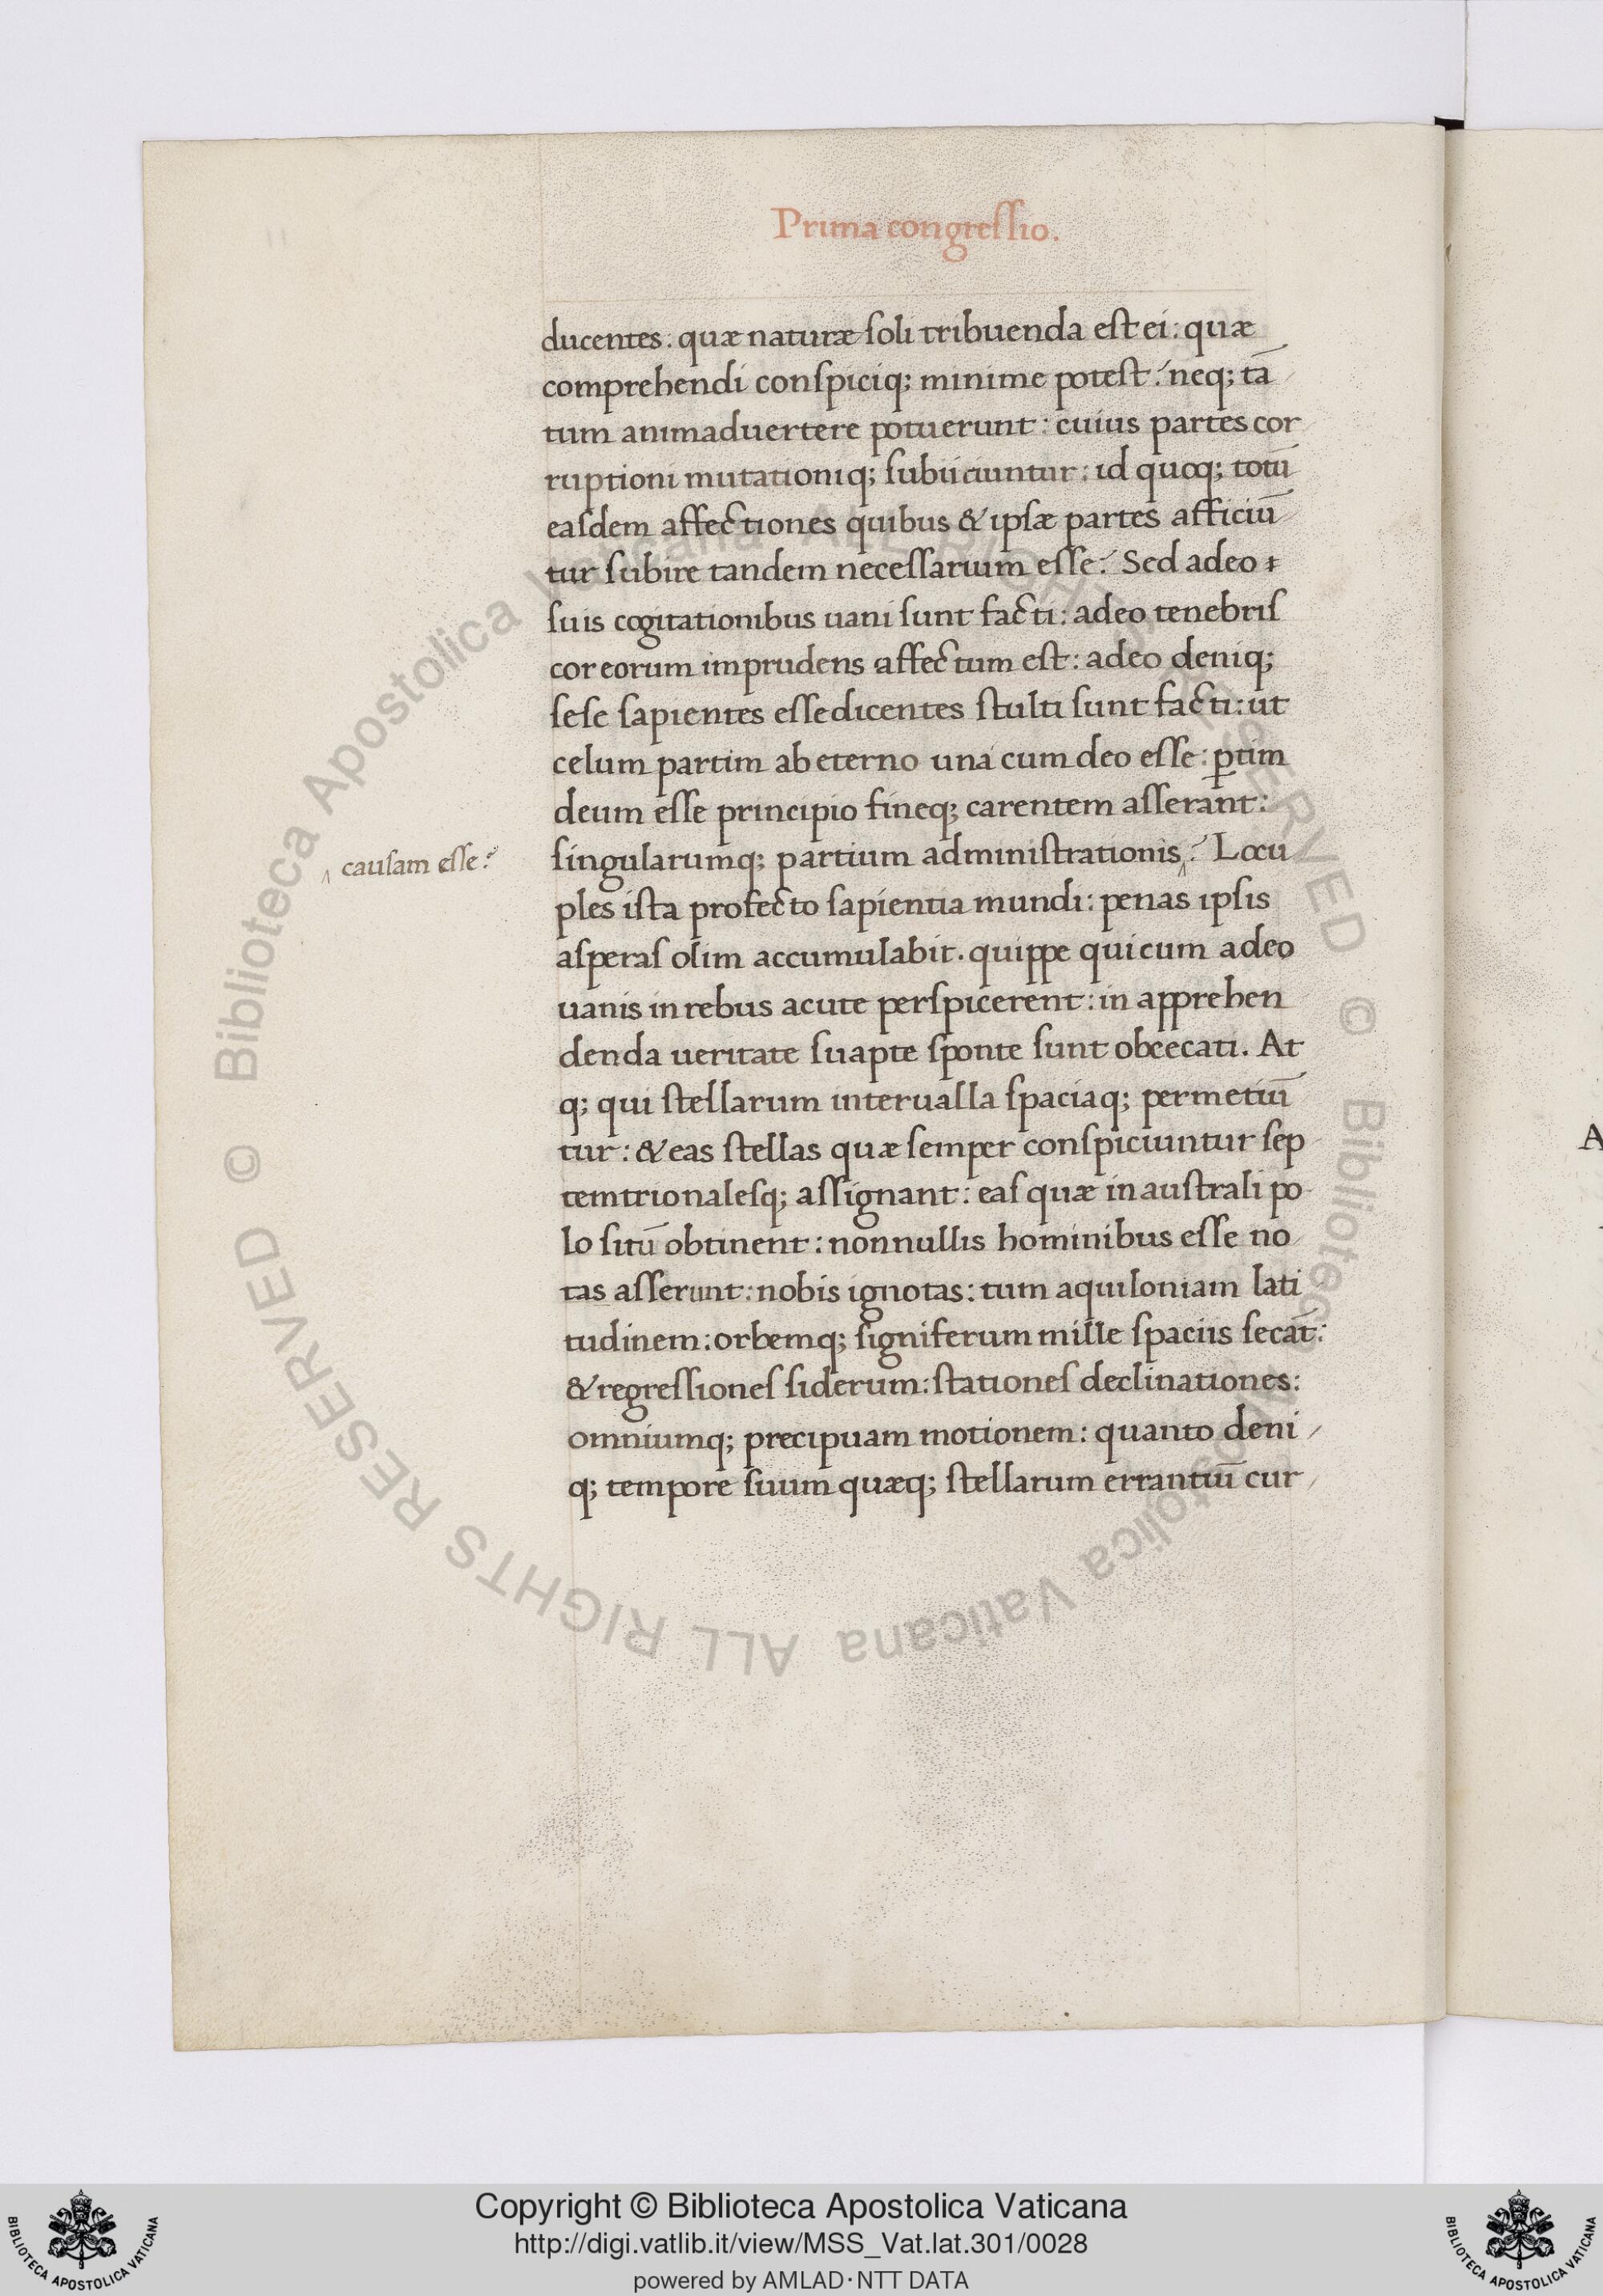 Prima congreſſio.
ducentes: quæ naturæ ſoli tribuenda eſt ei: quæ
comprehendi conſpiciq; minime poteſt? neq; tā
tum animaduertere potuerunt: cuius partes cor
ruptioni mutationiq; ſubiiciuntur: id quoq; totū
eaſdem affectiones quibus & ipſæ partes afficiū
tur ſubire tandem neceſſarium eſſe? Sed adeo ī
ſuis cogitationibus uani ſunt facti: adeo tenebriſ
cor eorum imprudens affectum eſt: adeo deniq;
ſeſe ſapientes eſſe dicentes ſtulti ſunt facti: ut
celum partim ab eterno una cum deo eſſe: ꝑtim
deum eſſe principio fineq; carentem aſſerant:
ſingularumq; partium adminiſtrationis‸? Locu
‸ cauſam eſſe?
ples iſta profecto ſapientia mundi: penas ipſis
aſperaſ olim accumulabit. quippe qui cum adeo
uanis in rebus acute perſpicerent: in apprehen
denda ueritate ſuapte ſponte ſunt obcecati. At
q; qui ſtellarum interualla ſpaciaq; permetiū
tur: & eas ſtellas quæ ſemper conſpiciuntur ſep
temtrionaleſq; aſſignant: eaſ quæ in auſtrali po
lo ſitū obtinent: nonnullis hominibus eſſe no
tas aſſerunt: nobis ignotas: tum aquiloniam lati
tudinem: orbemq; ſigniferum mille ſpaciis ſecāt:
& regreſſioneſ ſiderum: ſtationeſ declinationes:
omniumq; precipuam motionem: quanto deni
q; tempore ſuum quæq; ſtellarum errantiū cur
A
© Biblioteca Apostolica Vaticana ALL RIGHTS RESERVED
© Biblioteca Apostolica Vaticana ALL RIGHTS RESERVED
Copyright © Biblioteca Apostolica Vaticana
http://digi.vatlib.it/view/MSS_Vat.lat.301/0028
powered by AMLAD·NTT DATA
BIBLIOTECA APOSTOLICA VATICANA
BIBLIOTECA APOSTOLICA VATICANA